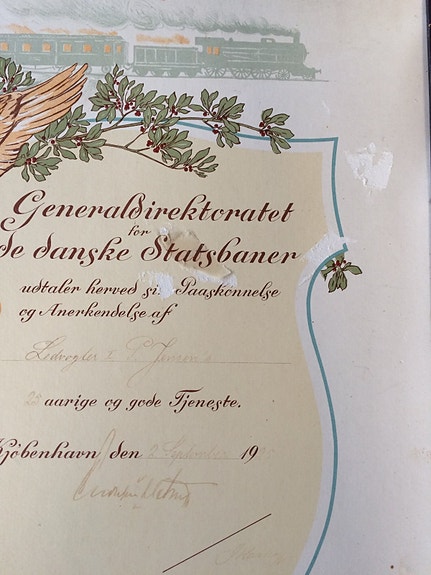 Generaldirektoratet
for
de danske Statsbaner
udtaler herved sin Paaskønnelse
og Anerkendelse af
Ledvogter P. Jensen's
25 aarige og gode Tjeneste.
Kjøbenhavn den 2 September 19